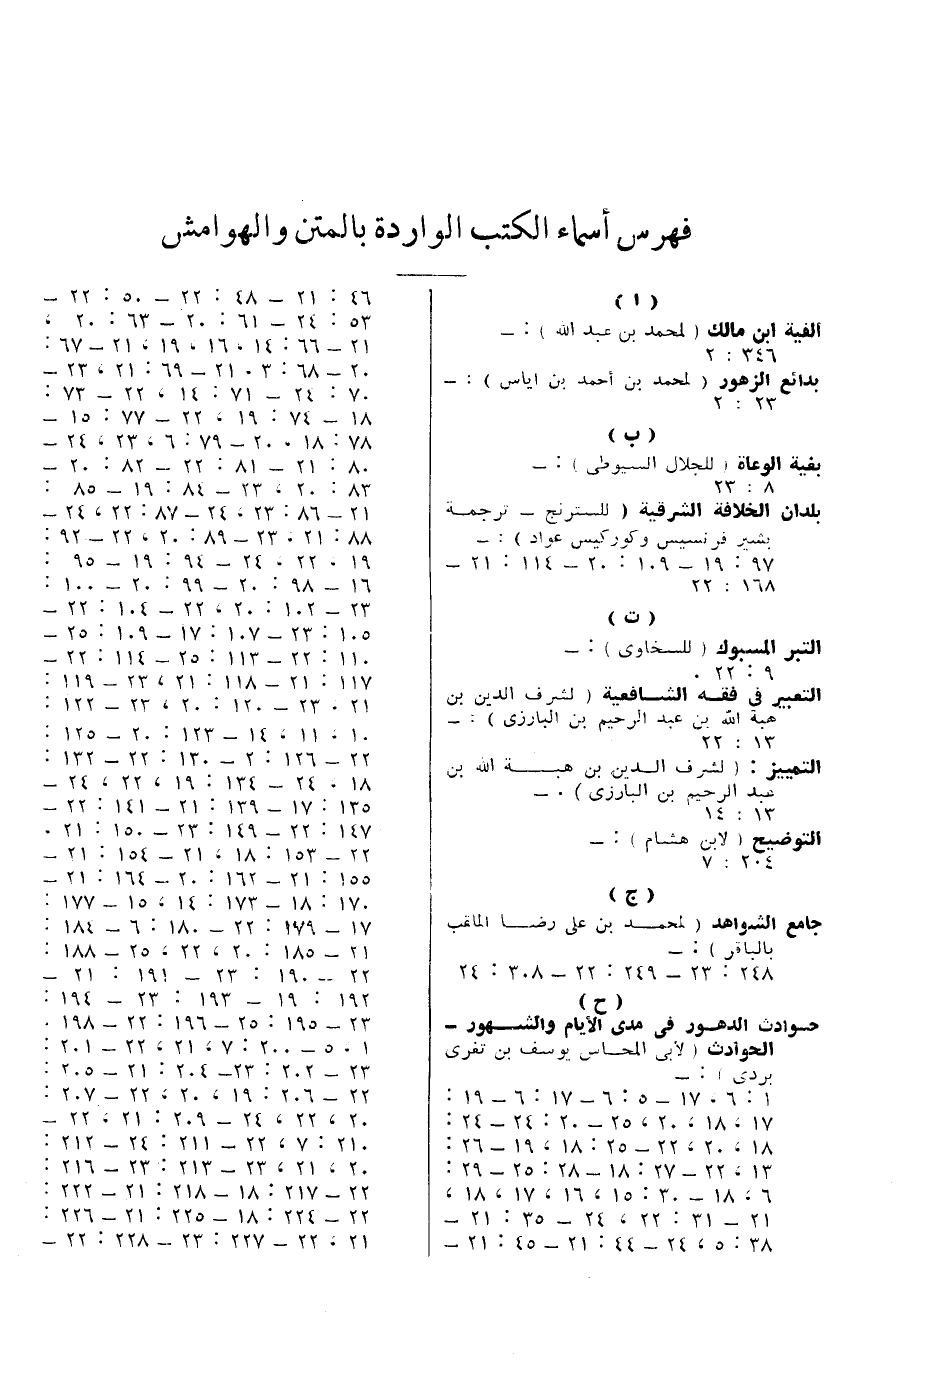 فهرس أسماء الكتب الواردة بالمتن والهوامش
( ا )
ألفية ابن مالك ( لمحمد بن عبد الله ) : —
٣٤٦ : ٢
بدائع الزهور ( لمحمد بن أحمد بن اياس ) : —
٢٣ : ٢
( ب )
بغية الوعاة ( للجلال السيوطى ) : —
٨ : ٢٣
بلدان الخلافة الشرقية ( للسترنج — ترجمة
بشير فرنسيس وكوركيس عواد ) : —
٩٧ : ١٩ — ١٠٩ : ٢٠ — ١١٤ : ٢١ —
١٦٨ : ٢٢
( ت )
التبر المسبوك ( للسخاوى ) : —
٩ : ٢٢ .
التعبير فى فقه الشافعية ( لشرف الدين بن
هبة الله بن عبد الرحيم بن البارزى ) : —
١٣ : ٢٢
التمييز : ( لشرف الدين بن هبة الله بن
عبد الرحيم بن البارزى ) . —
١٣ : ١٤
التوضيح ( لابن هشام ) : —
٢٠٤ : ٧
( ج )
جامع الشواهد ( لمحمد بن على رضا الملقب
بالباقر ) : —
٢٤٨ : ٢٣ — ٢٤٩ : ٢٢ — ٣٠٨ : ٢٤
( ح )
حوادث الدهور فى مدى الأيام والشهور —
الحوادث ( لأبى المحاسن يوسف بن تغرى
بردى ) : —
١ : ٦ ، ١٧ — ٥ : ٦ — ١٧ : ٦ — ١٩ :
١٧ ، ١٨ ، ٢٠ ، ٢٥ — ٢٠ : ٢٤ — ٢٤ :
١٨ ، ٢٠ ، ٢٢ — ٢٥ : ١٨ ، ١٩ — ٢٦ :
١٣ ، ٢٢ — ٢٧ : ١٨ — ٢٨ : ٢٥ — ٢٩ :
٦ ، ١٨ — ٣٠ : ١٥ ، ١٦ ، ١٧ ، ١٨ ،
٢١ — ٣١ : ٢٢ ، ٢٤ — ٣٥ : ٢١ —
٣٨ : ٥ ، ٢٤ — ٤٤ : ٢١ — ٤٥ : ٢١ —
٤٦ : ٢١ — ٤٨ : ٢٢ — ٥٠ : ٢٢ —
٥٣ : ٢٤ — ٦١ : ٢٠ — ٦٣ : ٢٠ ،
٢١ — ٦٦ : ١٤ ، ١٦ ، ١٩ ، ٢١ — ٦٧ :
٢٠ — ٦٨ : ٣ ، ٢١ — ٦٩ : ٢١ ، ٢٣ —
٧٠ : ٢٤ — ٧١ : ١٤ ، ٢٢ — ٧٣ :
١٨ — ٧٤ : ١٩ ، ٢٢ — ٧٧ : ١٥ —
٧٨ : ١٨ ، ٢٠ — ٧٩ : ٦ ، ٢٣ ، ٢٤ —
٨٠ : ٢١ — ٨١ : ٢٢ — ٨٢ : ٢٠ —
٨٣ : ٢٠ ، ٢٣ — ٨٤ : ١٩ — ٨٥ :
٢١ — ٨٦ : ٢٣ ، ٢٤ — ٨٧ : ٢٢ ، ٢٤ —
٨٨ : ٢١ ، ٢٣ — ٨٩ : ٢٠ ، ٢٢ — ٩٢ :
١٩ ، ٢٢ ، ٢٤ — ٩٤ : ١٩ — ٩٥ :
١٦ — ٩٨ : ٢٠ — ٩٩ : ٢٠ — ١٠٠ :
٢٣ — ١٠٢ : ٢٠ ، ٢٢ — ١٠٤ : ٢٢ —
١٠٥ : ٢٣ — ١٠٧ : ١٧ — ١٠٩ : ٢٥ —
١١٠ : ٢٢ — ١١٣ : ٢٥ — ١١٤ : ٢٢ —
١١٧ : ٢١ — ١١٨ : ٢١ ، ٢٣ — ١١٩ :
٢١ ، ٢٣ — ١٢٠ : ٢٠ ، ٢٣ — ١٢٢ :
١٠ ، ١١ ، ١٤ — ١٢٣ : ٢٠ — ١٢٥ :
٢٢ — ١٢٦ : ٢ — ١٣٠ : ٢٢ — ١٣٢ :
١٨ ، ٢٤ — ١٣٤ : ١٩ ، ٢٢ ، ٢٤ —
١٣٥ : ١٧ — ١٣٩ : ٢١ — ١٤١ : ٢٢ —
١٤٧ : ٢٢ — ١٤٩ : ٢٣ — ١٥٠ : ٢١ ،
٢٢ — ١٥٣ : ١٨ ، ٢١ — ١٥٤ : ٢١ —
١٥٥ : ٢١ — ١٦٢ : ٢٠ — ١٦٤ : ٢١ —
١٧٠ : ١٨ — ١٧٣ : ١٤ ، ١٥ — ١٧٧ :
١٧ — ١٧٩ : ٢٢ — ١٨٠ : ٦ — ١٨٤ :
٢١ — ١٨٥ : ٢٠ ، ٢٢ ، ٢٥ — ١٨٨ :
٢٢ — ١٩٠ : ٢٣ — ١٩١ : ٢١ —
١٩٢ : ١٩ — ١٩٣ : ٢٣ — ١٩٤ :
٢٣ — ١٩٥ : ٢٥ — ١٩٦ : ٢٢ — ١٩٨ .
١ ، ٥ — ٢٠٠ : ٧ ، ٢١ ، ٢٢ — ٢٠١ :
٢٣ — ٢٠٢ : ٢٣ — ٢٠٤ : ٢١ — ٢٠٥ :
٢٢ — ٢٠٦ : ١٩ ، ٢٠ ، ٢٢ — ٢٠٧ :
٢٠ ، ٢٢ ، ٢٤ — ٢٠٩ : ٢١ ، ٢٢ —
٢١٠ : ٧ ، ٢٢ — ٢١١ : ٢٤ — ٢١٢ :
٢٠ ، ٢١ ، ٢٣ — ٢١٣ : ٢٣ — ٢١٦ :
٢٢ — ٢١٧ : ١٨ — ٢١٨ : ٢١ — ٢٢٢ :
٢٢ — ٢٢٤ : ١٨ — ٢٢٥ : ٢١ — ٢٢٦ :
٢١ ، ٢٢ — ٢٢٧ : ٢٣ — ٢٢٨ : ٢٢ —